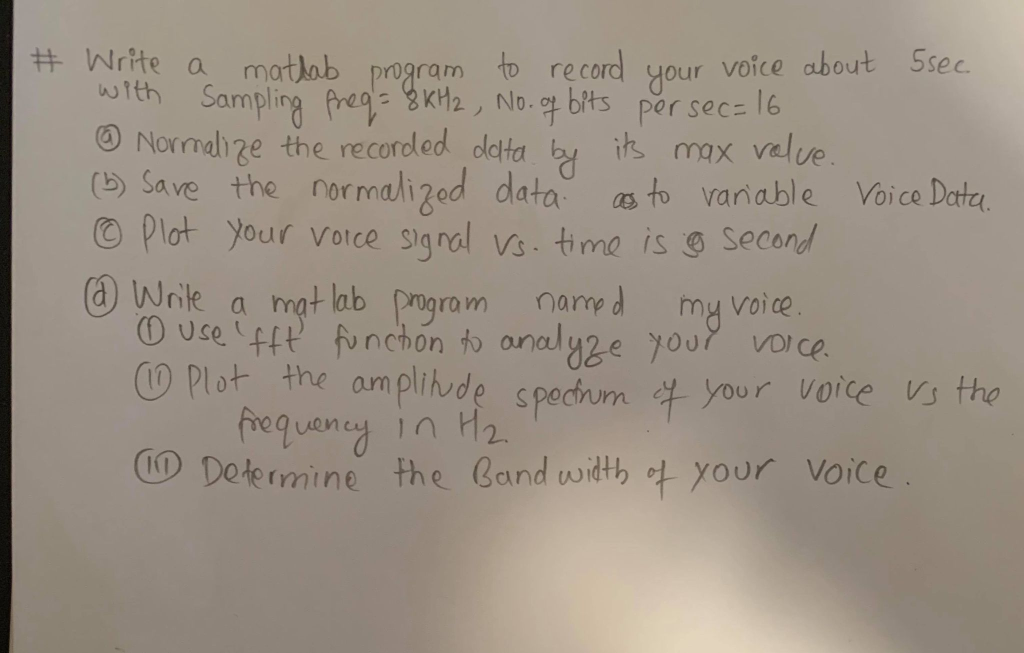 # Write a matlab program to record your voice about 5sec.
with Sampling freq = 8KHz, No. of bits per sec = 16
(a) Normalize the recorded data by its max value.
(b) Save the normalized data. as to variable Voice Data.
(c) Plot your voice signal vs. time is second
(d) Write a matlab program named my voice.
(i) Use 'fft' function to analyze your voice.
(ii) Plot the amplitude spectrum of your voice vs the
frequency in Hz
(iii) Determine the Band width of your voice.